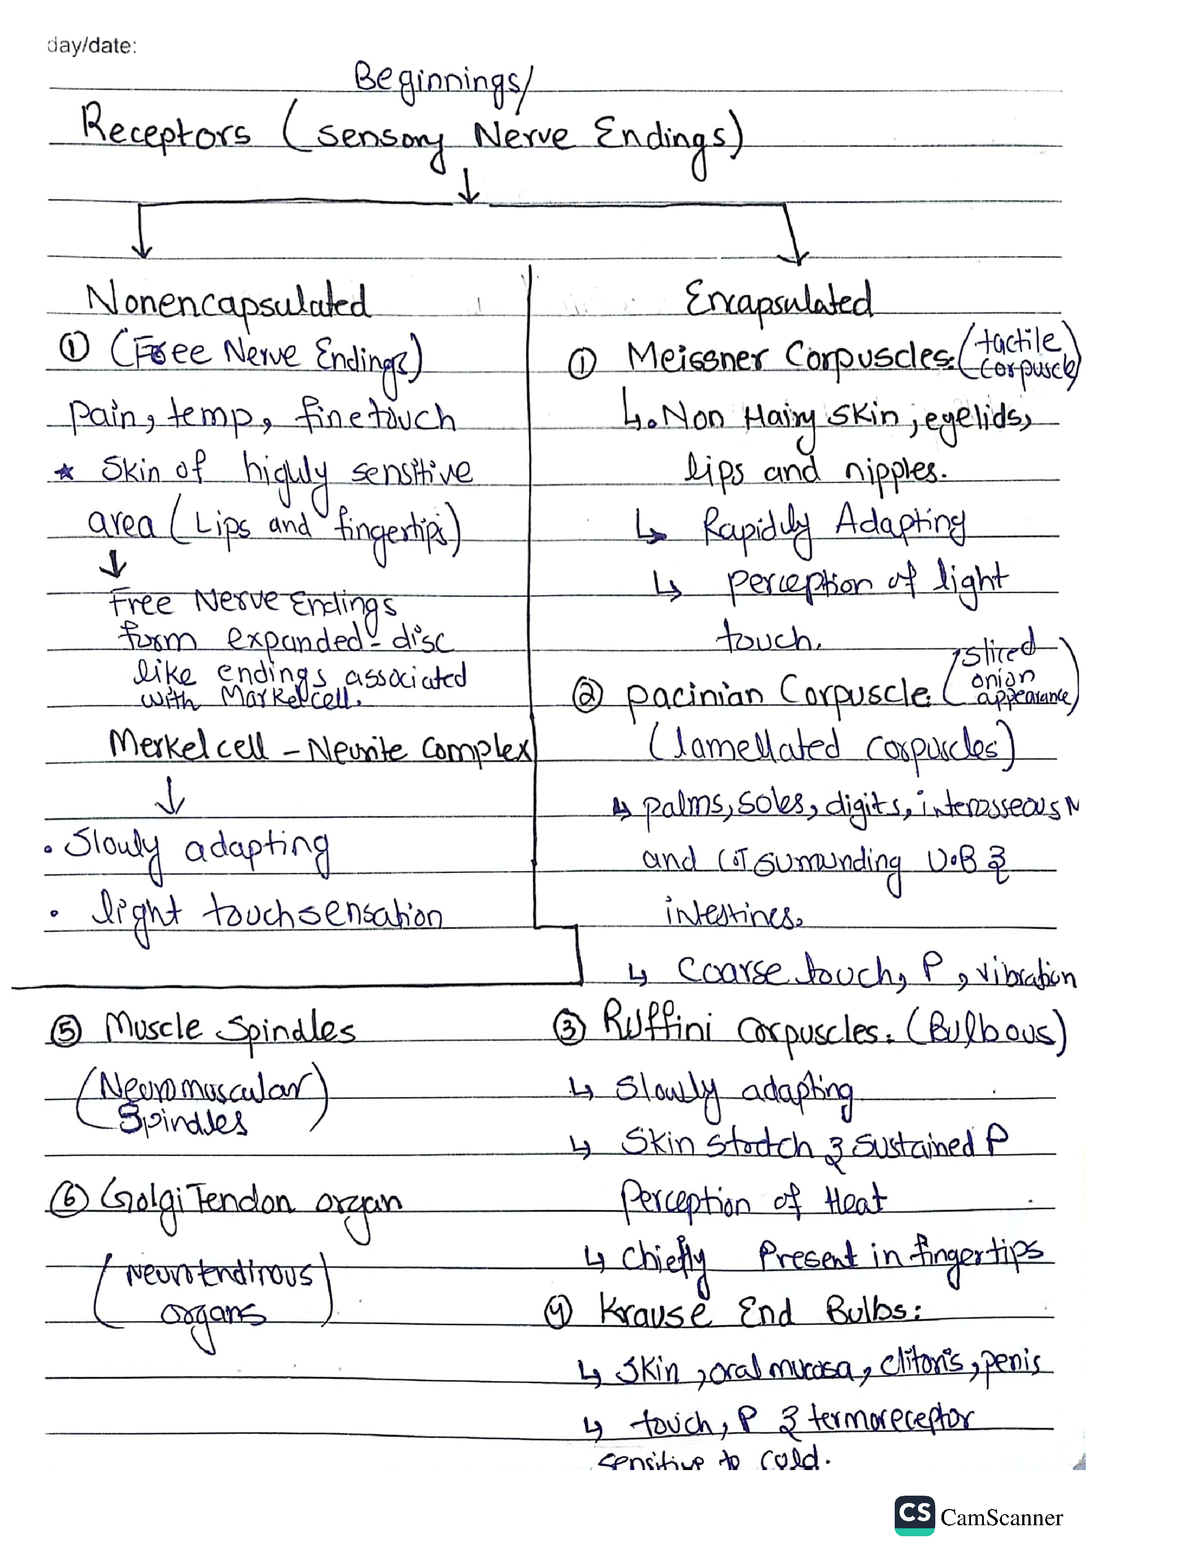 day/date:
Beginnings/
Receptors (sensory Nerve Endings)
Nonencapsulated
① (Free Nerve Endings)
pain, temp, fine touch
* Skin of highly sensitive
area (Lips and fingertips)
Free Nerve Endings
form expanded-disc
like endings associated
with Markel cell.
Merkel cell - Neurite Complex
• Slowly adapting
• light touch sensation
Encapsulated
① Meissner Corpuscles: (tactile
corpuscle)
↳ • Non Hairy skin, eyelids,
lips and nipples.
↳ Rapidly Adapting
↳ perception of light
touch.
② pacinian Corpuscle (sliced
onion
appearance)
(lamellated corpuscles)
↳ palms, soles, digits, interosseous N
and CT surrounding U.B &
intestines.
↳ Coarse touch, P, vibration
③ Ruffini corpuscles: (Bulbous)
↳ Slowly adapting
↳ Skin stretch & sustained P
perception of Heat
↳ Chiefly Present in fingertips
④ Krause End Bulbs:
↳ Skin, oral mucosa, clitoris, penis
↳ touch, P & termoreceptor
sensitive to cold.
⑤ Muscle Spindles
(Neuromuscular
Spindles)
⑥ Golgi Tendon organ
(Neurotendinous
organs)
CS CamScanner